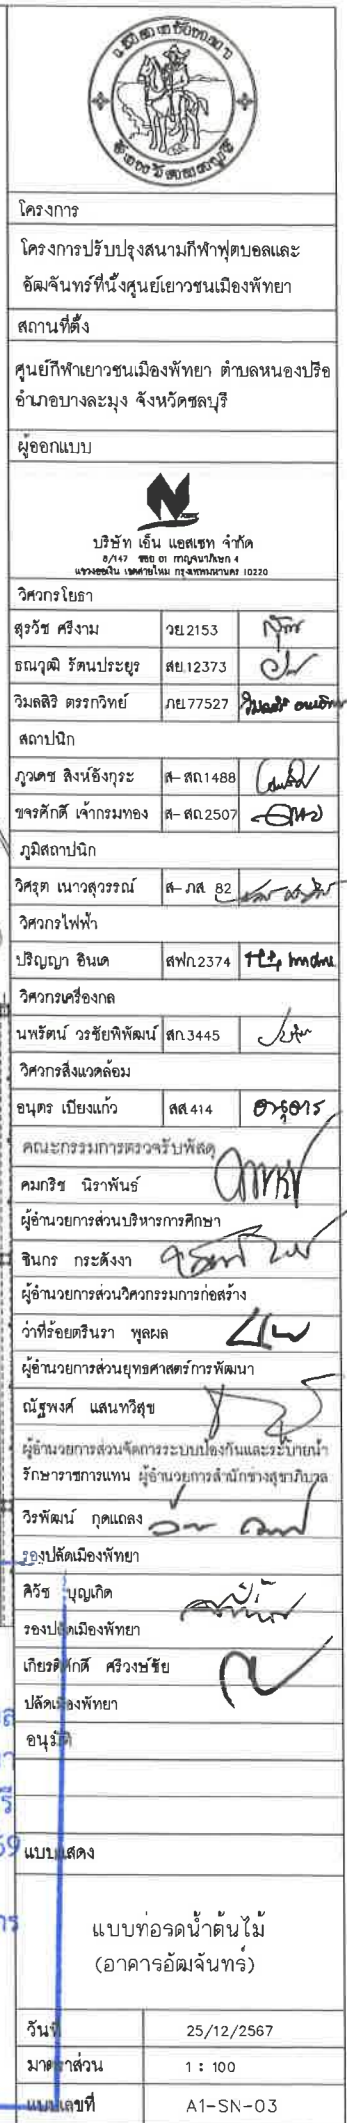 เมืองพัทยา
จังหวัดชลบุรี
โครงการ
โครงการปรับปรุงสนามกีฬาฟุตบอลและ
อัฒจันทร์ที่นั่งศูนย์เยาวชนเมืองพัทยา
สถานที่ตั้ง
ศูนย์กีฬาเยาวชนเมืองพัทยา ตำบลหนองปรือ
อำเภอบางละมุง จังหวัดชลบุรี
ผู้ออกแบบ
บริษัท เอ็น แอสเซท จำกัด
8/147 ซอย 01 กาญจนาภิเษก 4
แขวงออเงิน เขตสายไหม กรุงเทพมหานคร 10220
วิศวกรโยธา
สุรวัช ศรีงาม วย.2153
ธณวุฒิ รัตนประยูร สย.12373
วิมลสิริ ตรรกวิทย์ ภย.77527
สถาปนิก
ภูวเดช สิงห์อังกุระ ส-สถ.1488
ขจรศักดิ์ เจ้ากรมทอง ส-สถ.2507
ภูมิสถาปนิก
วิศรุต เนาวสุวรรณ์ ส-ภส. 82
วิศวกรไฟฟ้า
ปริญญา อินเด สฟก.2374
วิศวกรเครื่องกล
นพรัตน์ วรชัยพิพัฒน์ สก.3445
วิศวกรสิ่งแวดล้อม
อนุตร เบียงแก้ว สส.414
คณะกรรมการตรวจรับพัสดุ
คมกริช นิราพันธ์
ผู้อำนวยการส่วนบริหารการศึกษา
ชินกร กระดังงา
ผู้อำนวยการส่วนวิศวกรรมการก่อสร้าง
ว่าที่ร้อยตรีนรา พูลผล
ผู้อำนวยการส่วนยุทธศาสตร์การพัฒนา
ณัฐพงศ์ แสนทวีสุข
ผู้อำนวยการส่วนจัดการระบบป้องกันและระบายน้ำ
รักษาราชการแทน ผู้อำนวยการสำนักช่างสุขาภิบาล
วิรพัฒน์ กุดแถลง
รองปลัดเมืองพัทยา
ศิวัช บุญเกิด
รองปลัดเมืองพัทยา
เกียรติศักดิ์ ศรีวงษ์ชัย
ปลัดเมืองพัทยา
อนุมัติ
แบบแสดง
แบบท่อรดน้ำต้นไม้
(อาคารอัฒจันทร์)
วันที่ 25/12/2567
มาตราส่วน 1 : 100
แบบเลขที่ A1-SN-03